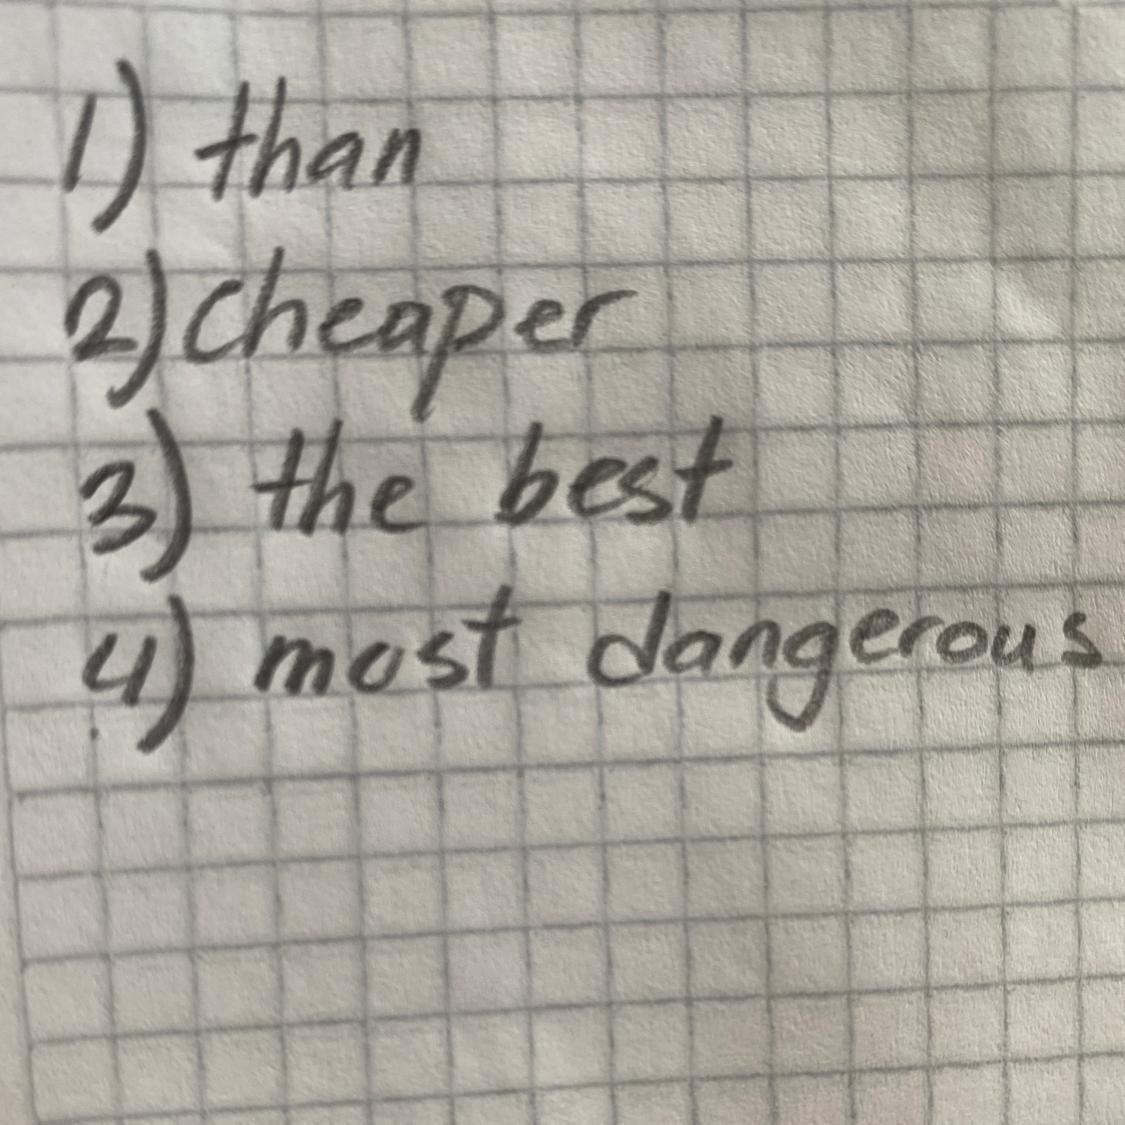 1) than
2) cheaper
3) the best
4) most dangerous